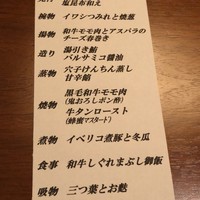 塩昆布和え
椀物 イワシつみれと焼葱
揚物 和牛モモ肉とアスパラの
チーズ春巻き
造り 湯引き鮪
バルサミコ醤油
蒸物 穴子けんちん蒸し
甘辛餡
焼物 黒毛和牛モモ肉
(鬼おろしポン酢)
牛タンロースト
(蜂蜜マスタード)
煮物 イベリコ煮豚と冬瓜
食事 和牛しぐれまぶし御飯
吸物 三つ葉とお麩